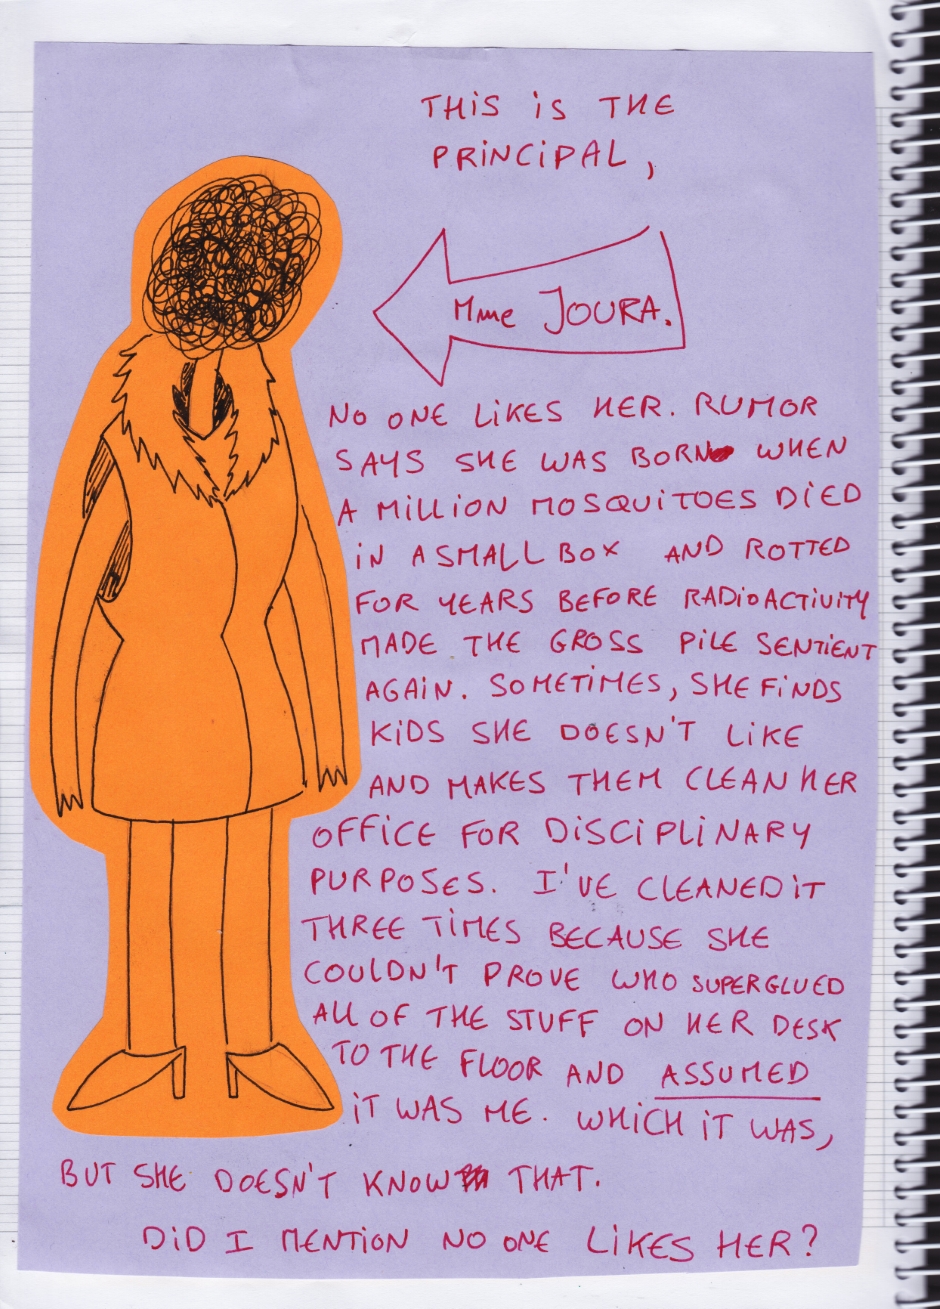 THiS iS THE
PRiNCiPAL,
Mme JOURA.
NO ONE LiKES HER. RUMOR
SAYS SHE WAS BORN WHEN
A MiLLiON MOSQUiTOES DiED
iN A SMALL BOX AND ROTTED
FOR YEARS BEFORE RADiOACTiViTY
MADE THE GROSS PiLE SENTiENT
AGAiN. SOMETiMES, SHE FiNDS
KiDS SHE DOESN'T LiKE
AND MAKES THEM CLEAN HER
OFFiCE FOR DiSCiPLiNARY
PURPOSES. I'VE CLEANED iT
THREE TiMES BECAUSE SHE
COULDN'T PROVE WHO SUPERGLUED
ALL OF THE STUFF ON HER DESK
TO THE FLOOR AND ASSUMED
iT WAS ME. WHiCH iT WAS,
BUT SHE DOESN'T KNOW THAT.
DiD I MENTiON NO ONE LiKES HER?